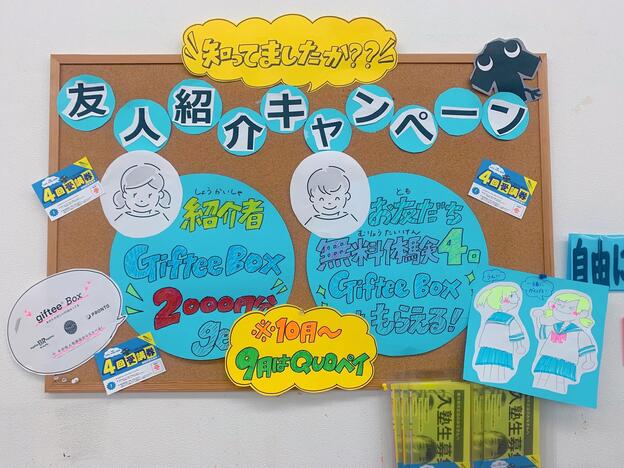 知ってましたか??
友人紹介キャンペーン
4回受講券
4回受講券
しょうかいしゃ
紹介者
Giftee Box
2000円分
ge
とも
お友だち
むりょうたいけん
無料体験4回
Giftee Box
もらえる!
※10月〜
9月はQUOペイ
giftee Box
PRONTO
4回受講券
自由に
入塾生募
入塾生募